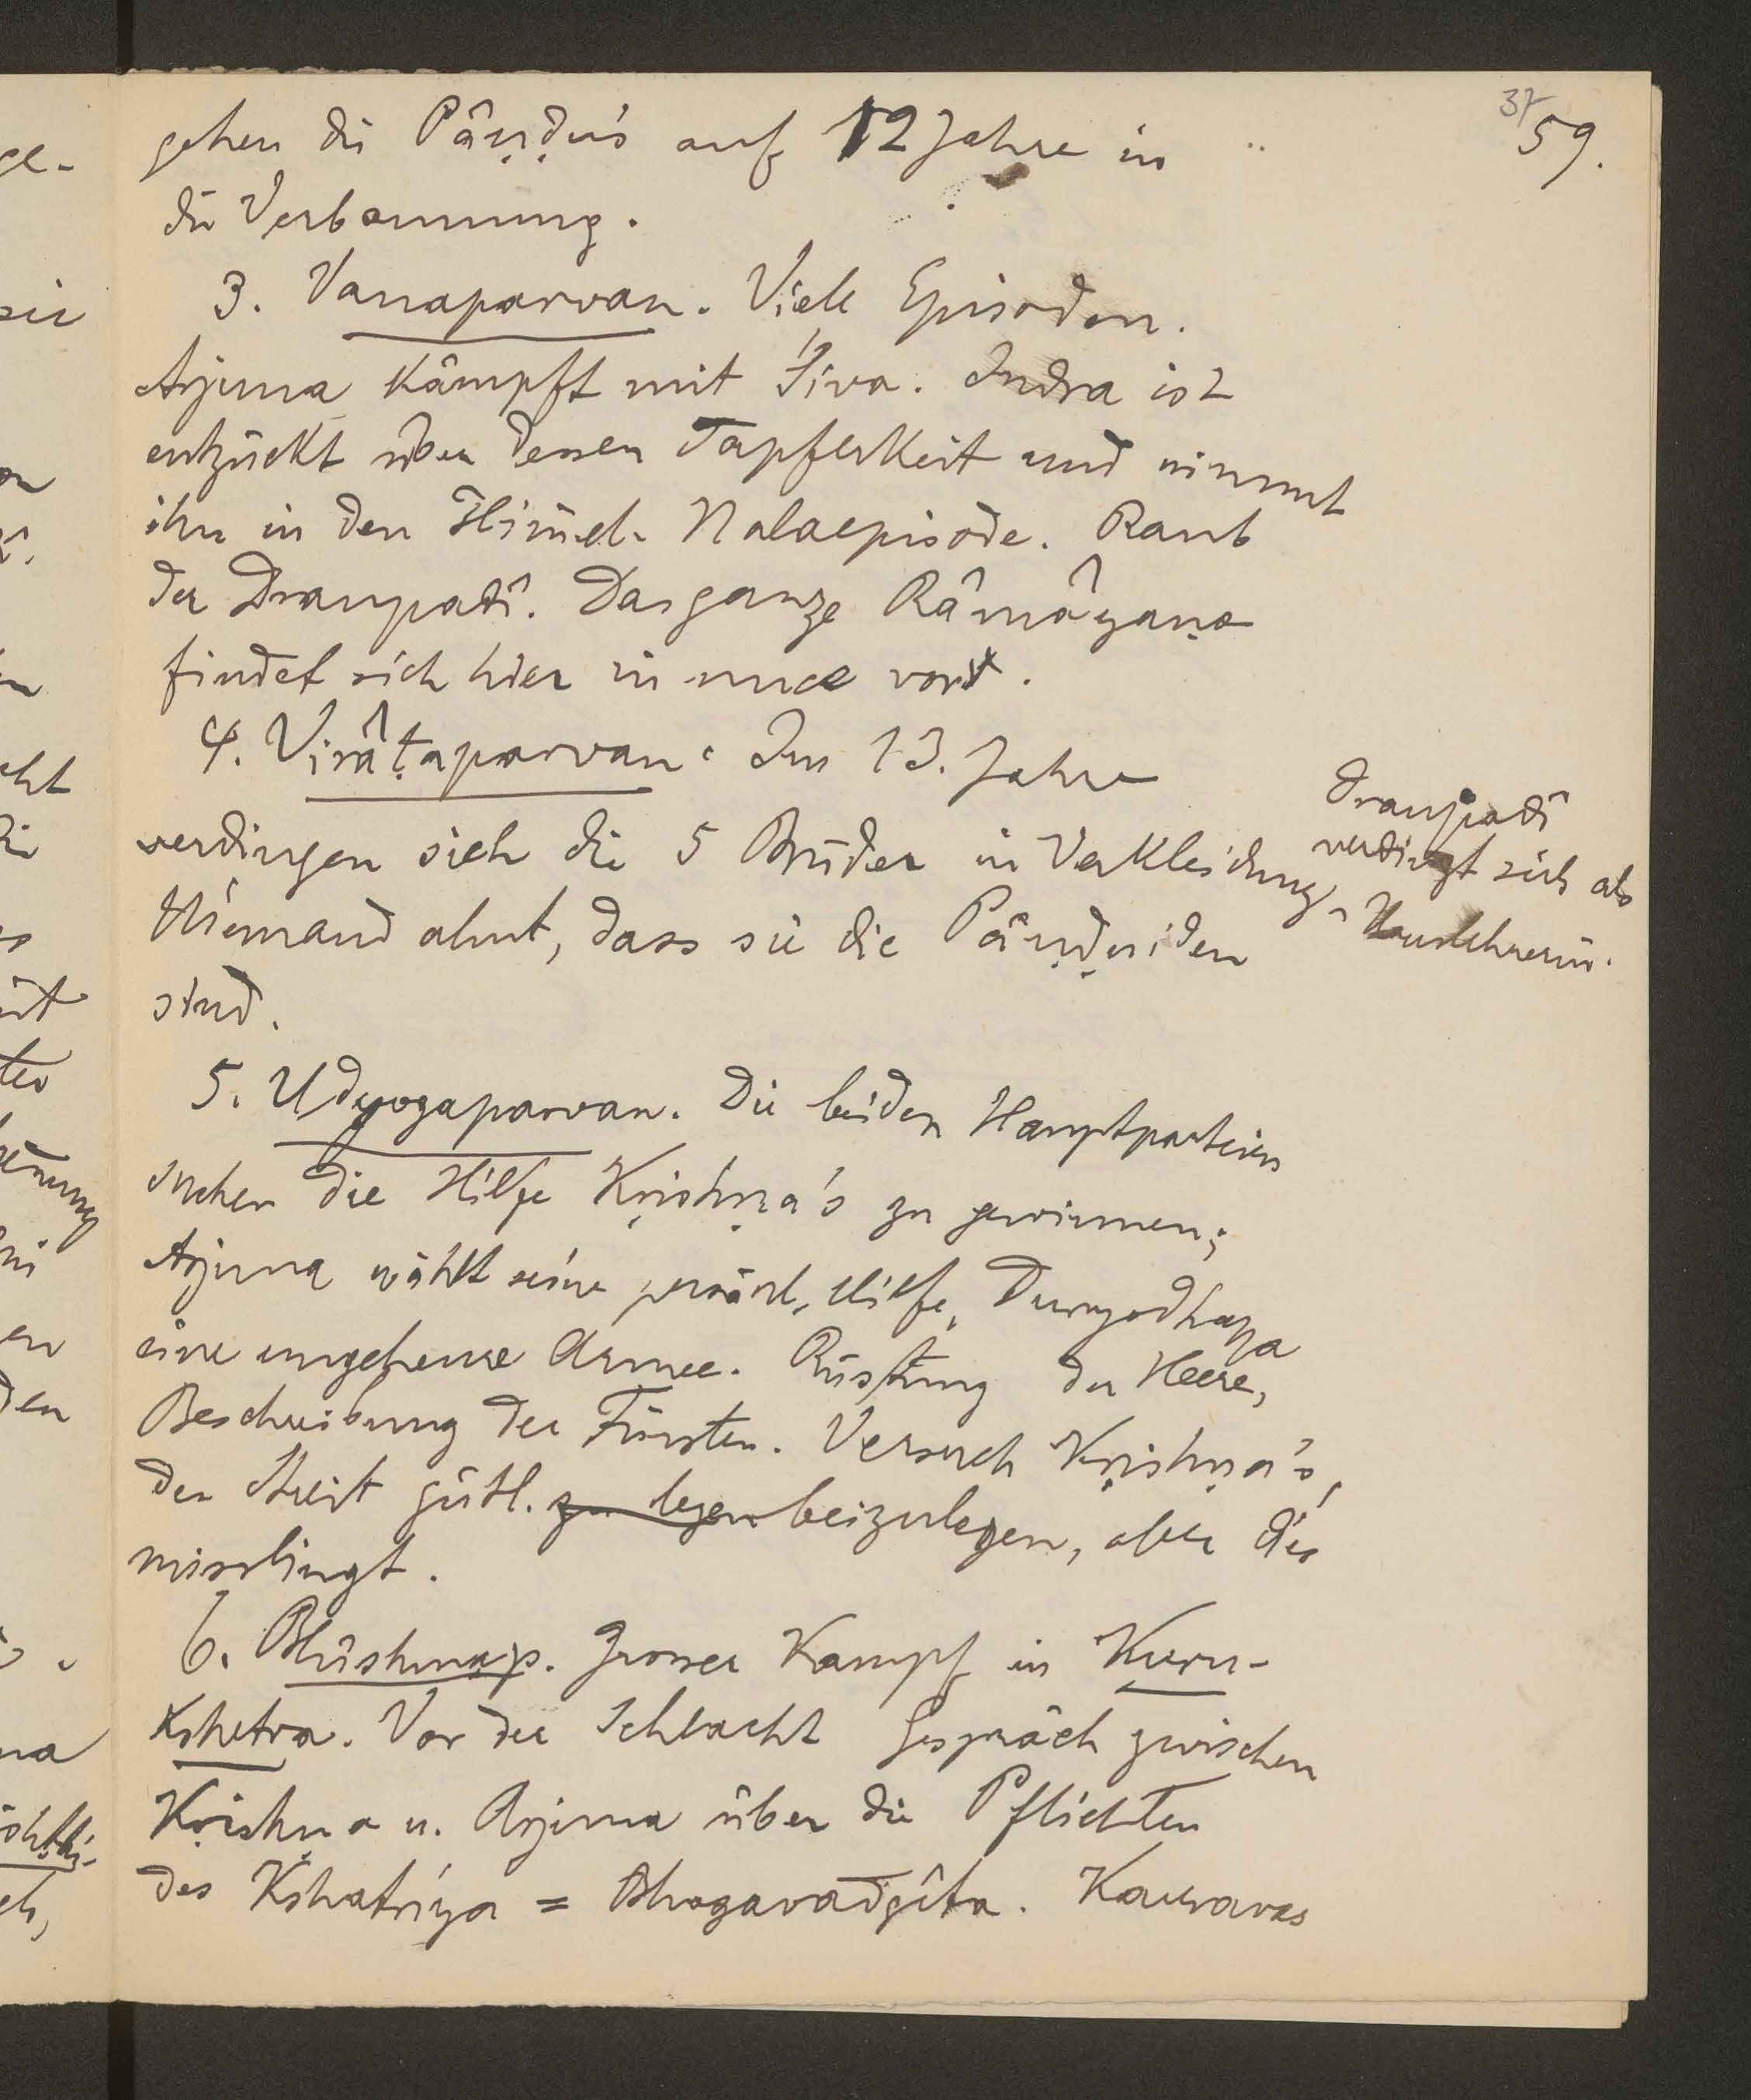 37
59.
gehen die Pâṇḍu's auf 12 Jahre in
die Verbannung.
3. Vanaparvan. Viele Episoden.
Arjuna kämpft mit Śiva. Indra ist
entzückt über dessen Tapferkeit und nimmt
ihn in den Him̄el. Nalaepisode. Raub
der Draupadî. Das ganze Râmâyaṇa
findet sich hier in nuce vor.
4. Virâṭaparvan. Im 13. Jahre
verdingen sich die 5 Brüder in Verkleidung.
Draupadî
verdingt sich als
Hauslehrerin.
Niemand ahnt, dass sie die Pâṇḍuiden
sind.
5. Udyogaparvan. Die beiden Hauptparteien
suchen die Hilfe Kṛishṇa's zu gewinnen;
Arjuna wählt seine persönl. Hilfe, Duryodhana
eine ungeheure Armee. Rüstung der Heere,
Beschreibung der Fürsten. Versuch Kṛishṇa's,
den Streit gütl. zu legen beizulegen, aber dies
misslingt.
6. Bhîshmap. Grosser Kampf in Kuru-
kshetra. Vor der Schlacht Gespräch zwischen
Kṛishṇa u. Arjuna über die Pflichten
des Kshatriya = Bhagavadgîta. Kauravas